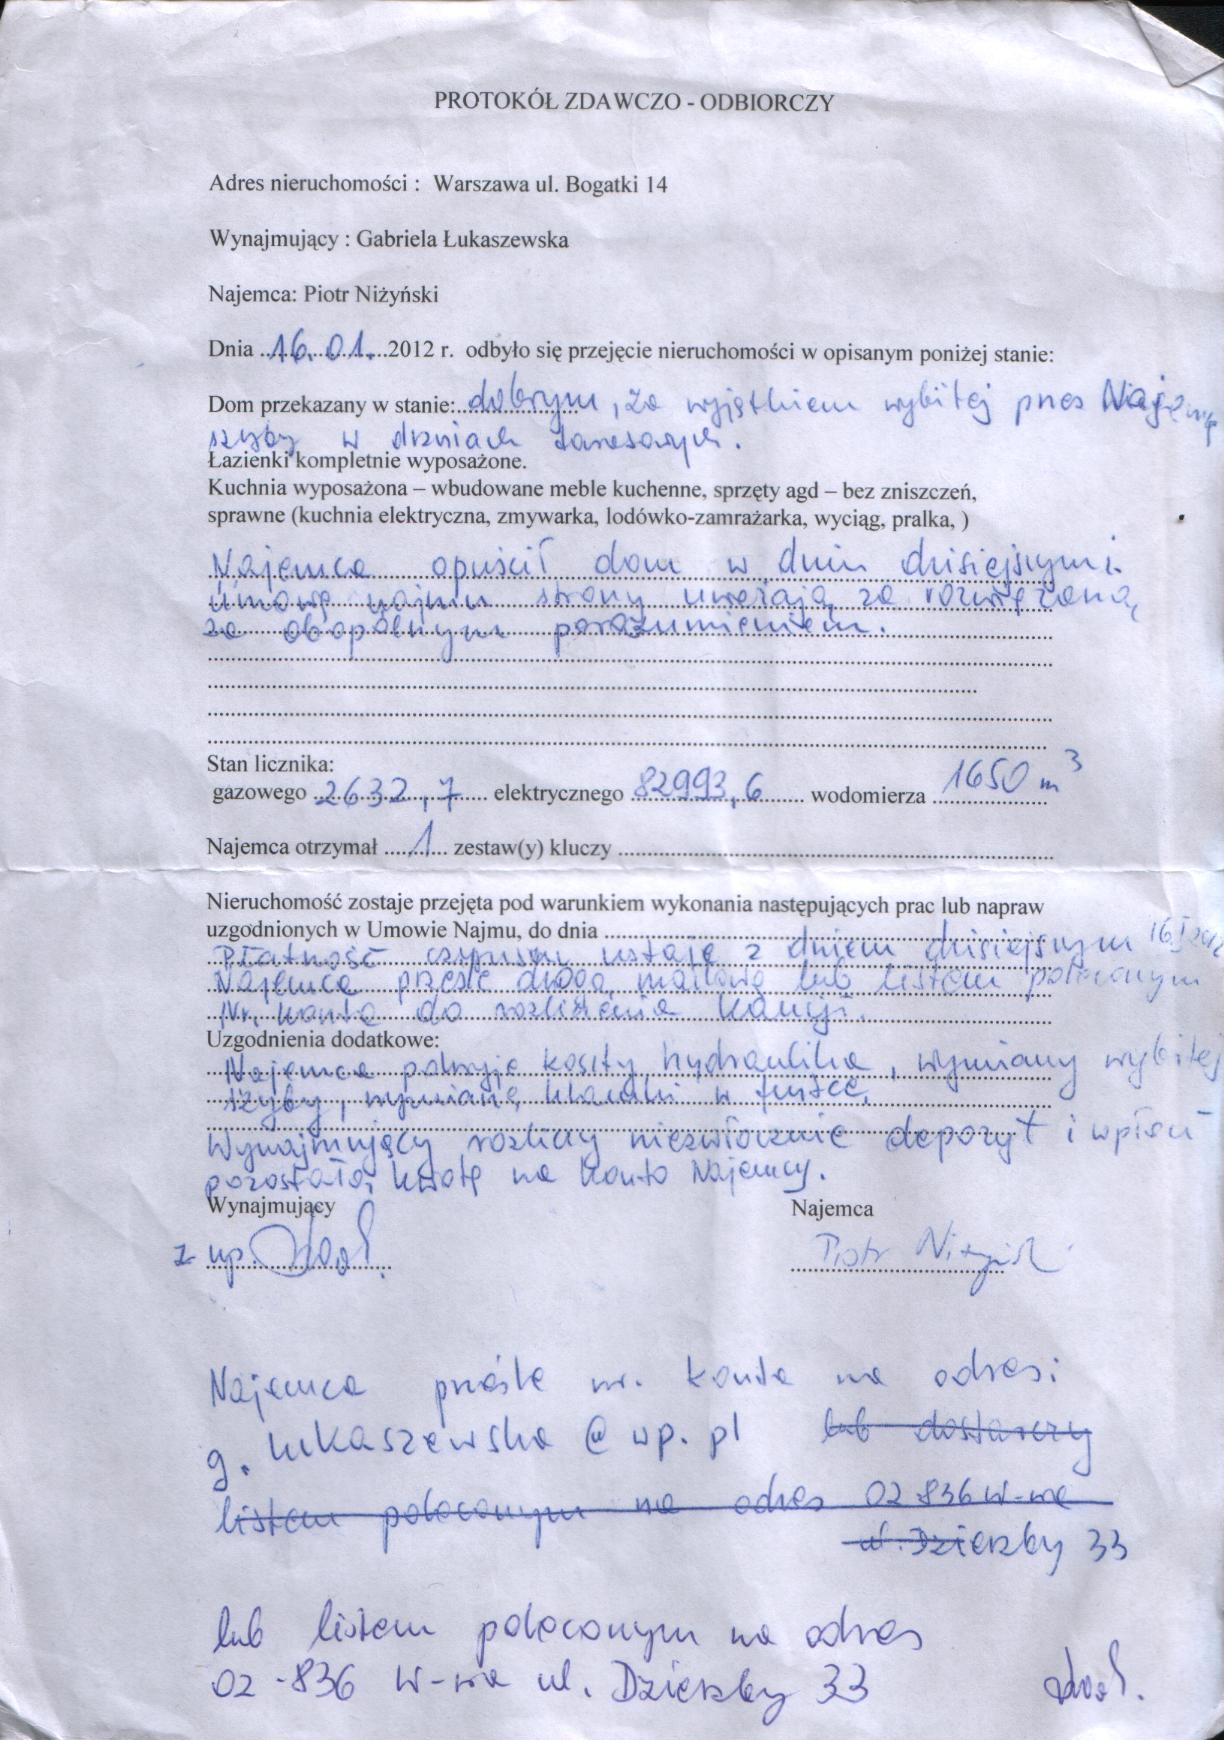 PROTOKÓŁ ZDAWCZO - ODBIORCZY
Adres nieruchomości : Warszawa ul. Bogatki 14
Wynajmujący : Gabriela Łukaszewska
Najemca: Piotr Niżyński
Dnia ..16.01...2012 r. odbyło się przejęcie nieruchomości w opisanym poniżej stanie:
Dom przekazany w stanie: dobrym, za wyjątkiem wybitej przez Najemcę
szyby w drzwiach tarasowych.
Łazienki kompletnie wyposażone.
Kuchnia wyposażona – wbudowane meble kuchenne, sprzęty agd – bez zniszczeń,
sprawne (kuchnia elektryczna, zmywarka, lodówko-zamrażarka, wyciąg, pralka, )
Najemca opuścił dom w dniu dzisiejszym i
umowę najmu strony uważają za rozwiązaną
za obopólnym porozumieniem.
Stan licznika:
gazowego 2632,7 elektrycznego 82993,6 wodomierza 1650 m³
Najemca otrzymał 1 zestaw(y) kluczy
Nieruchomość zostaje przejęta pod warunkiem wykonania następujących prac lub napraw
uzgodnionych w Umowie Najmu, do dnia
Płatność czynszu ustaje z dniem dzisiejszym 16 I 2012
Najemca prześle drogą mailową lub listem poleconym
Nr. konta do rozliczenia kaucji.
Uzgodnienia dodatkowe:
Najemca pokryje koszty hydraulika, wymiany wybitej
szyby, wymianę w furtce.
Wynajmujący rozliczy niezwłocznie depozyt i wpłaci
pozostałą kwotę na konto Najemcy.
Wynajmujący Najemca
z up.
Piotr Niżyński
Najemca prześle nr. konta na adres:
g.lukaszewska@wp.pl lub dostarczy
listem poleconym na adres 02-836 W-wa
ul. Dzierzby 33
lub listem poleconym na adres
02-836 W-wa ul. Dzierzby 33